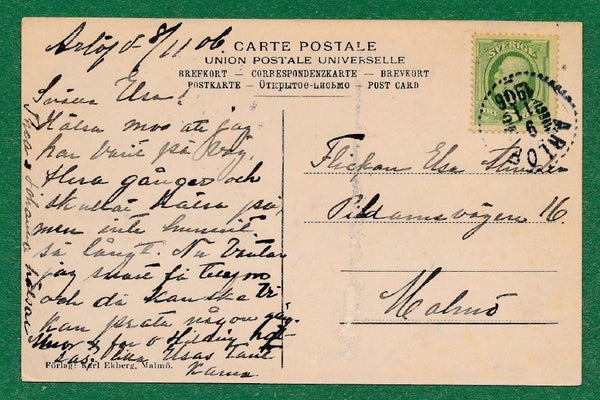 Arlöf d 8/11 06.
CARTE POSTALE
UNION POSTALE UNIVERSELLE
BREFKORT — CORRESPONDENZKARTE — BREVKORT
POSTKARTE — Открытое-письмо — POST CARD
SVERIGE
ARLÖF
1906
Elsa!
Hälsa mor att jag
har varit på väg
flera gånger och
skulle hälsa på,
men inte hunnit
så långt. Nu väntar
jag snart få telefon
och då kanske vi
kan prata någon gång.
Elsas Tant
Karna
Johanna hälsar
Flickan Elsa
Pildamsvägen 16
Malmö
Förlag: Karl Ekberg, Malmö.